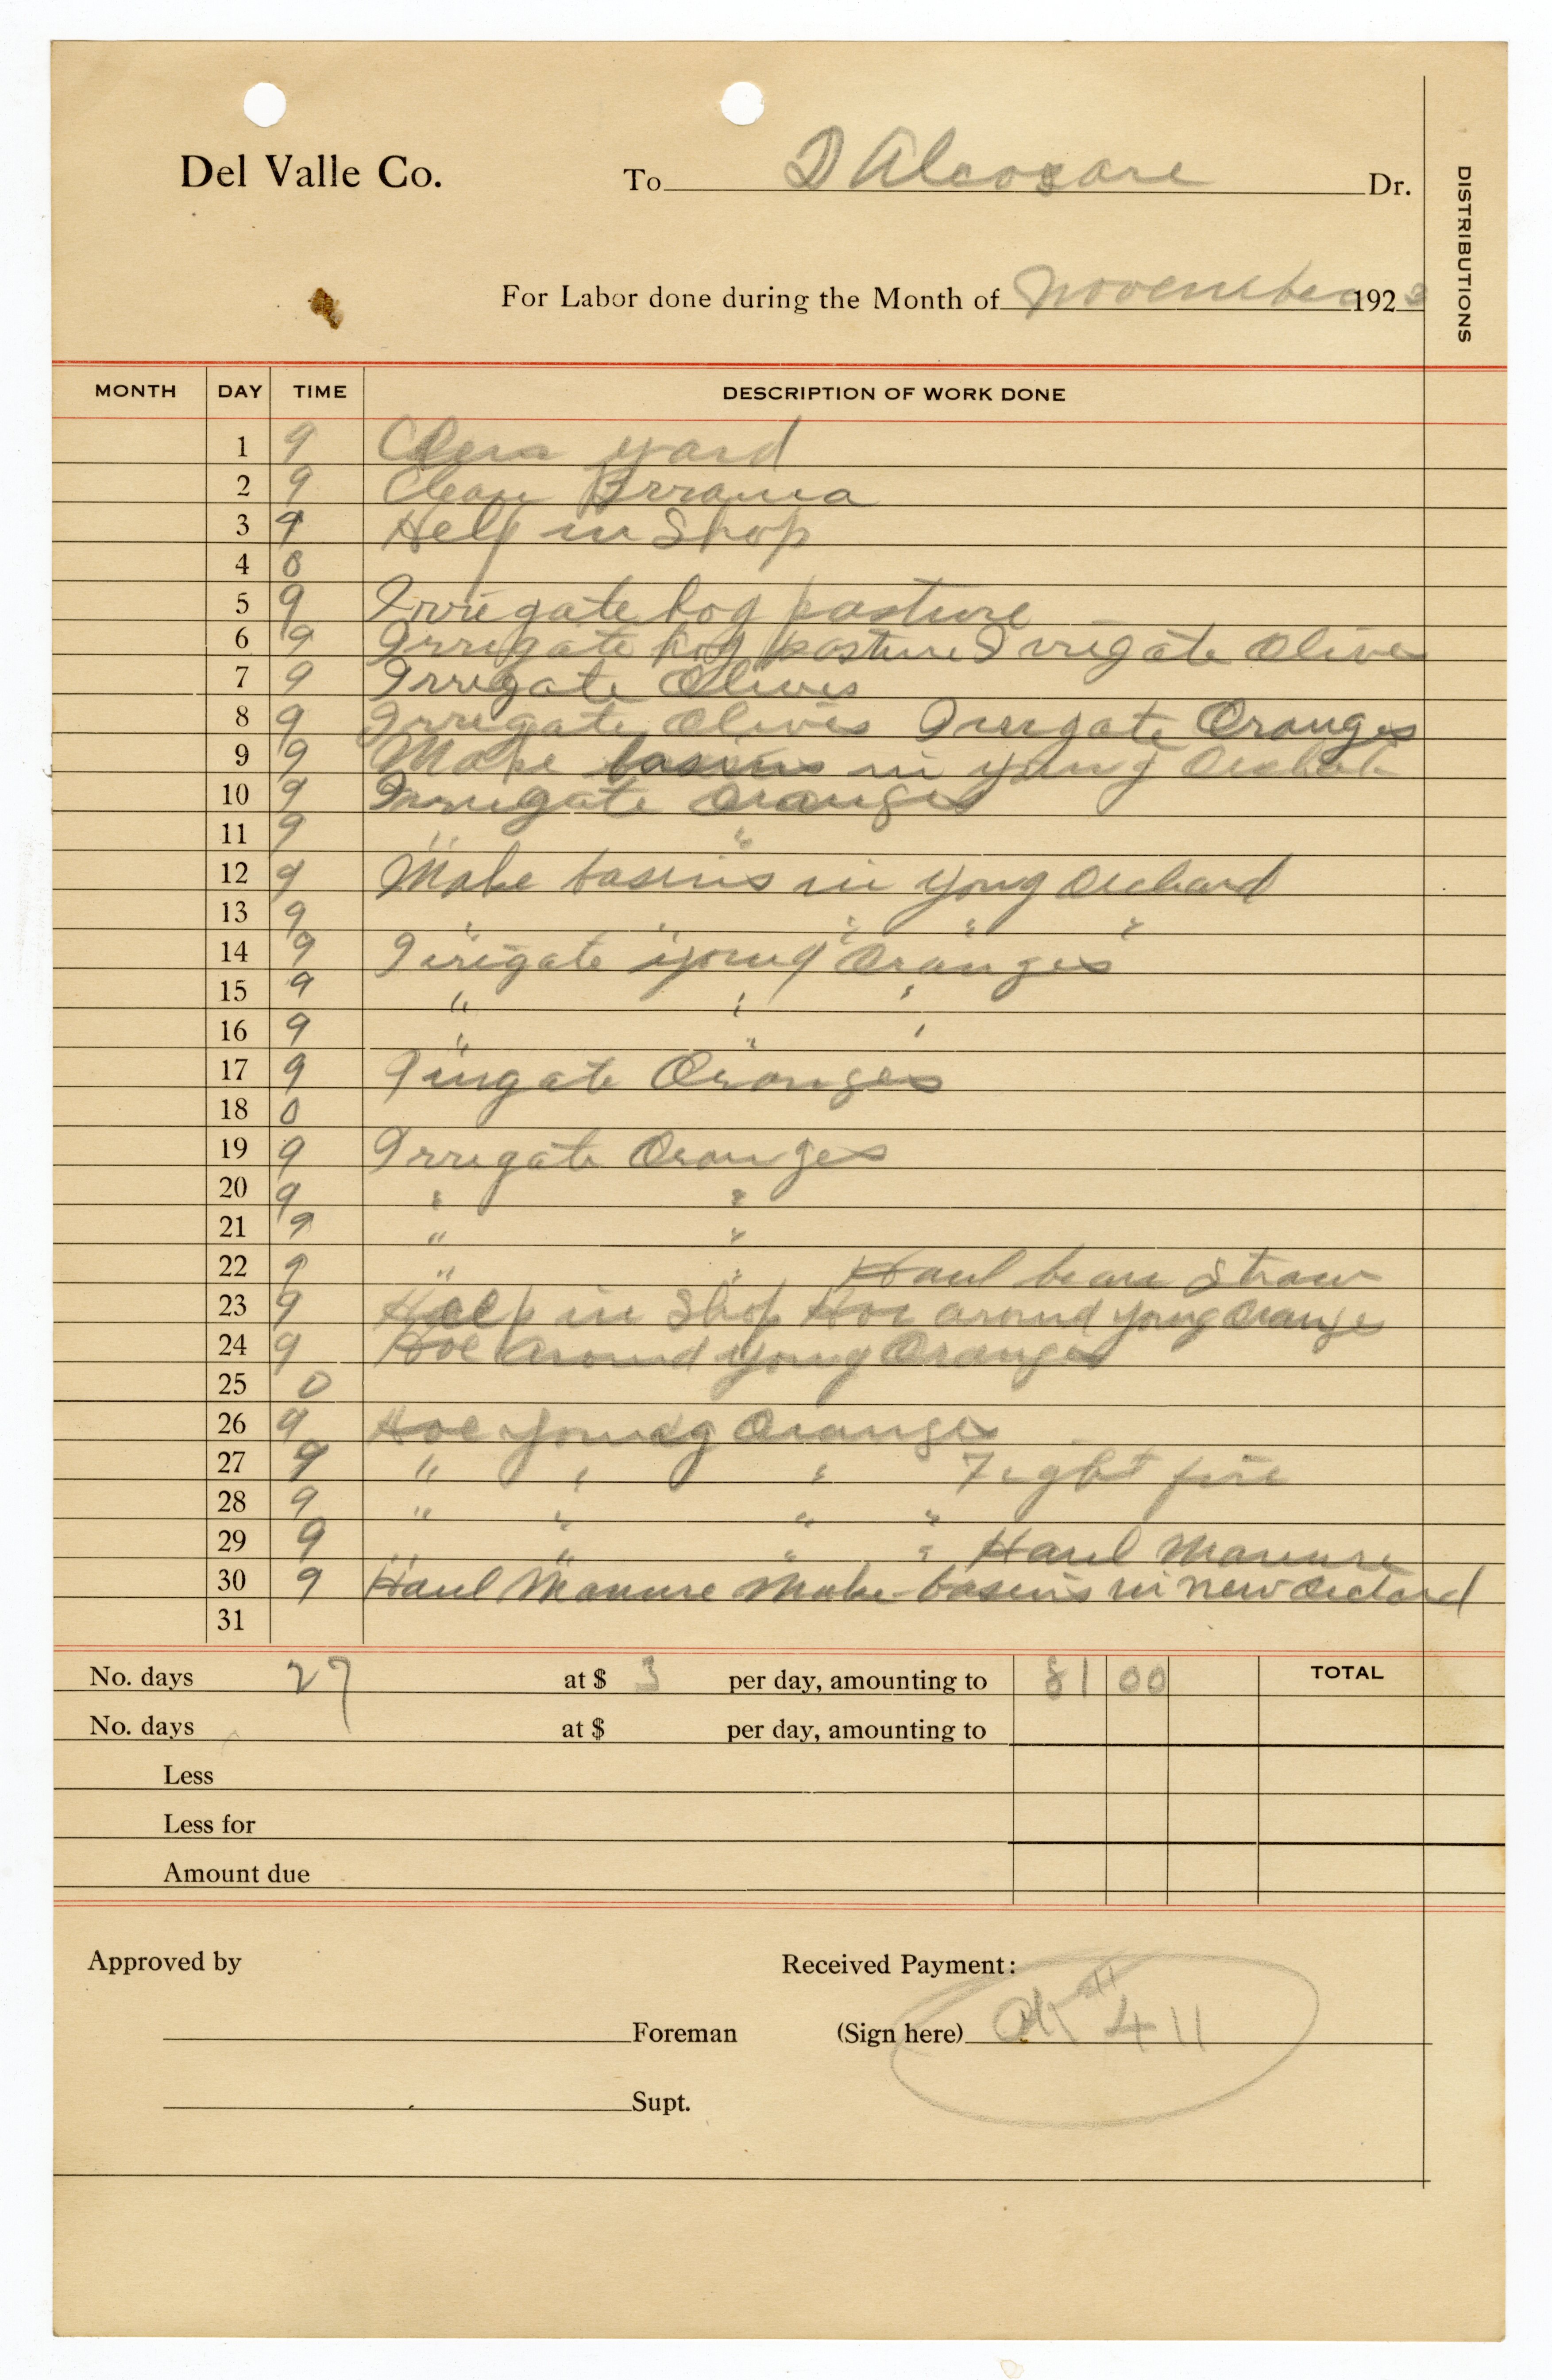 Del Valle Co. To D Alcosare Dr.
DISTRIBUTIONS
For Labor done during the Month of November 1923
MONTH DAY TIME DESCRIPTION OF WORK DONE
1 9 Clean yard
2 9 Clean
3 9 Help in Shop
4 0
5 9 Irrigate hog pasture
6 9 Irrigate hog pasture Irrigate Olives
7 9 Irrigate Olives
8 9 Irrigate Olives Irrigate Oranges
9 9 Make basins in young
10 9 Irrigate Oranges
11 9 " "
12 9 Make basins in yong Orchard
13 9 " " " " "
14 9 Irrigate young Oranges
15 9 " " "
16 9 " " "
17 9 Irrigate Oranges
18 0
19 9 Irrigate Oranges
20 9 " "
21 9 " "
22 9 " " Haul bean Straw
23 9 Help in Shop Hoe around young Oranges
24 9 Hoe around young Oranges
25 0
26 9 Hoe young Oranges
27 9 " " " Fight fire
28 9 " " " "
29 9 " " " " Haul Manure
30 9 Haul Manure Make basins in new Orchard
31
No. days 27 at $ 3 per day, amounting to 81 00 TOTAL
No. days at $ per day, amounting to
Less
Less for
Amount due
Approved by Received Payment:
Foreman (Sign here) 411
Supt.